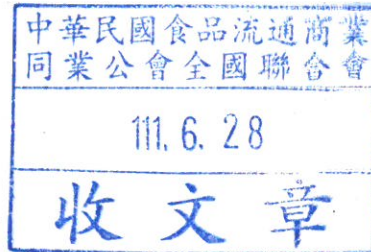 中華民國食品流通商業
同業公會全國聯合會
111.6.28
收文章